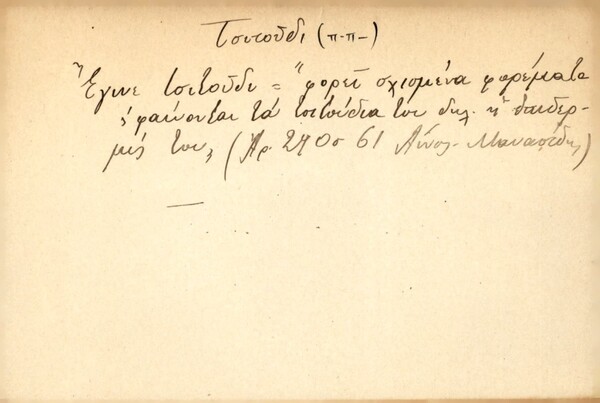 Τσιτσῦδι (π-π-)
"Ἔγινε τσιτσῦδι = "φορεῖ σχισμένα φορέματα
ς φαίνονται τὰ τσιτσύδια του δηλ. ἡ ἐπιδερ-
μίς του, (Ἀρ. 270σ 61 Αἶνος - Μανασείδης)